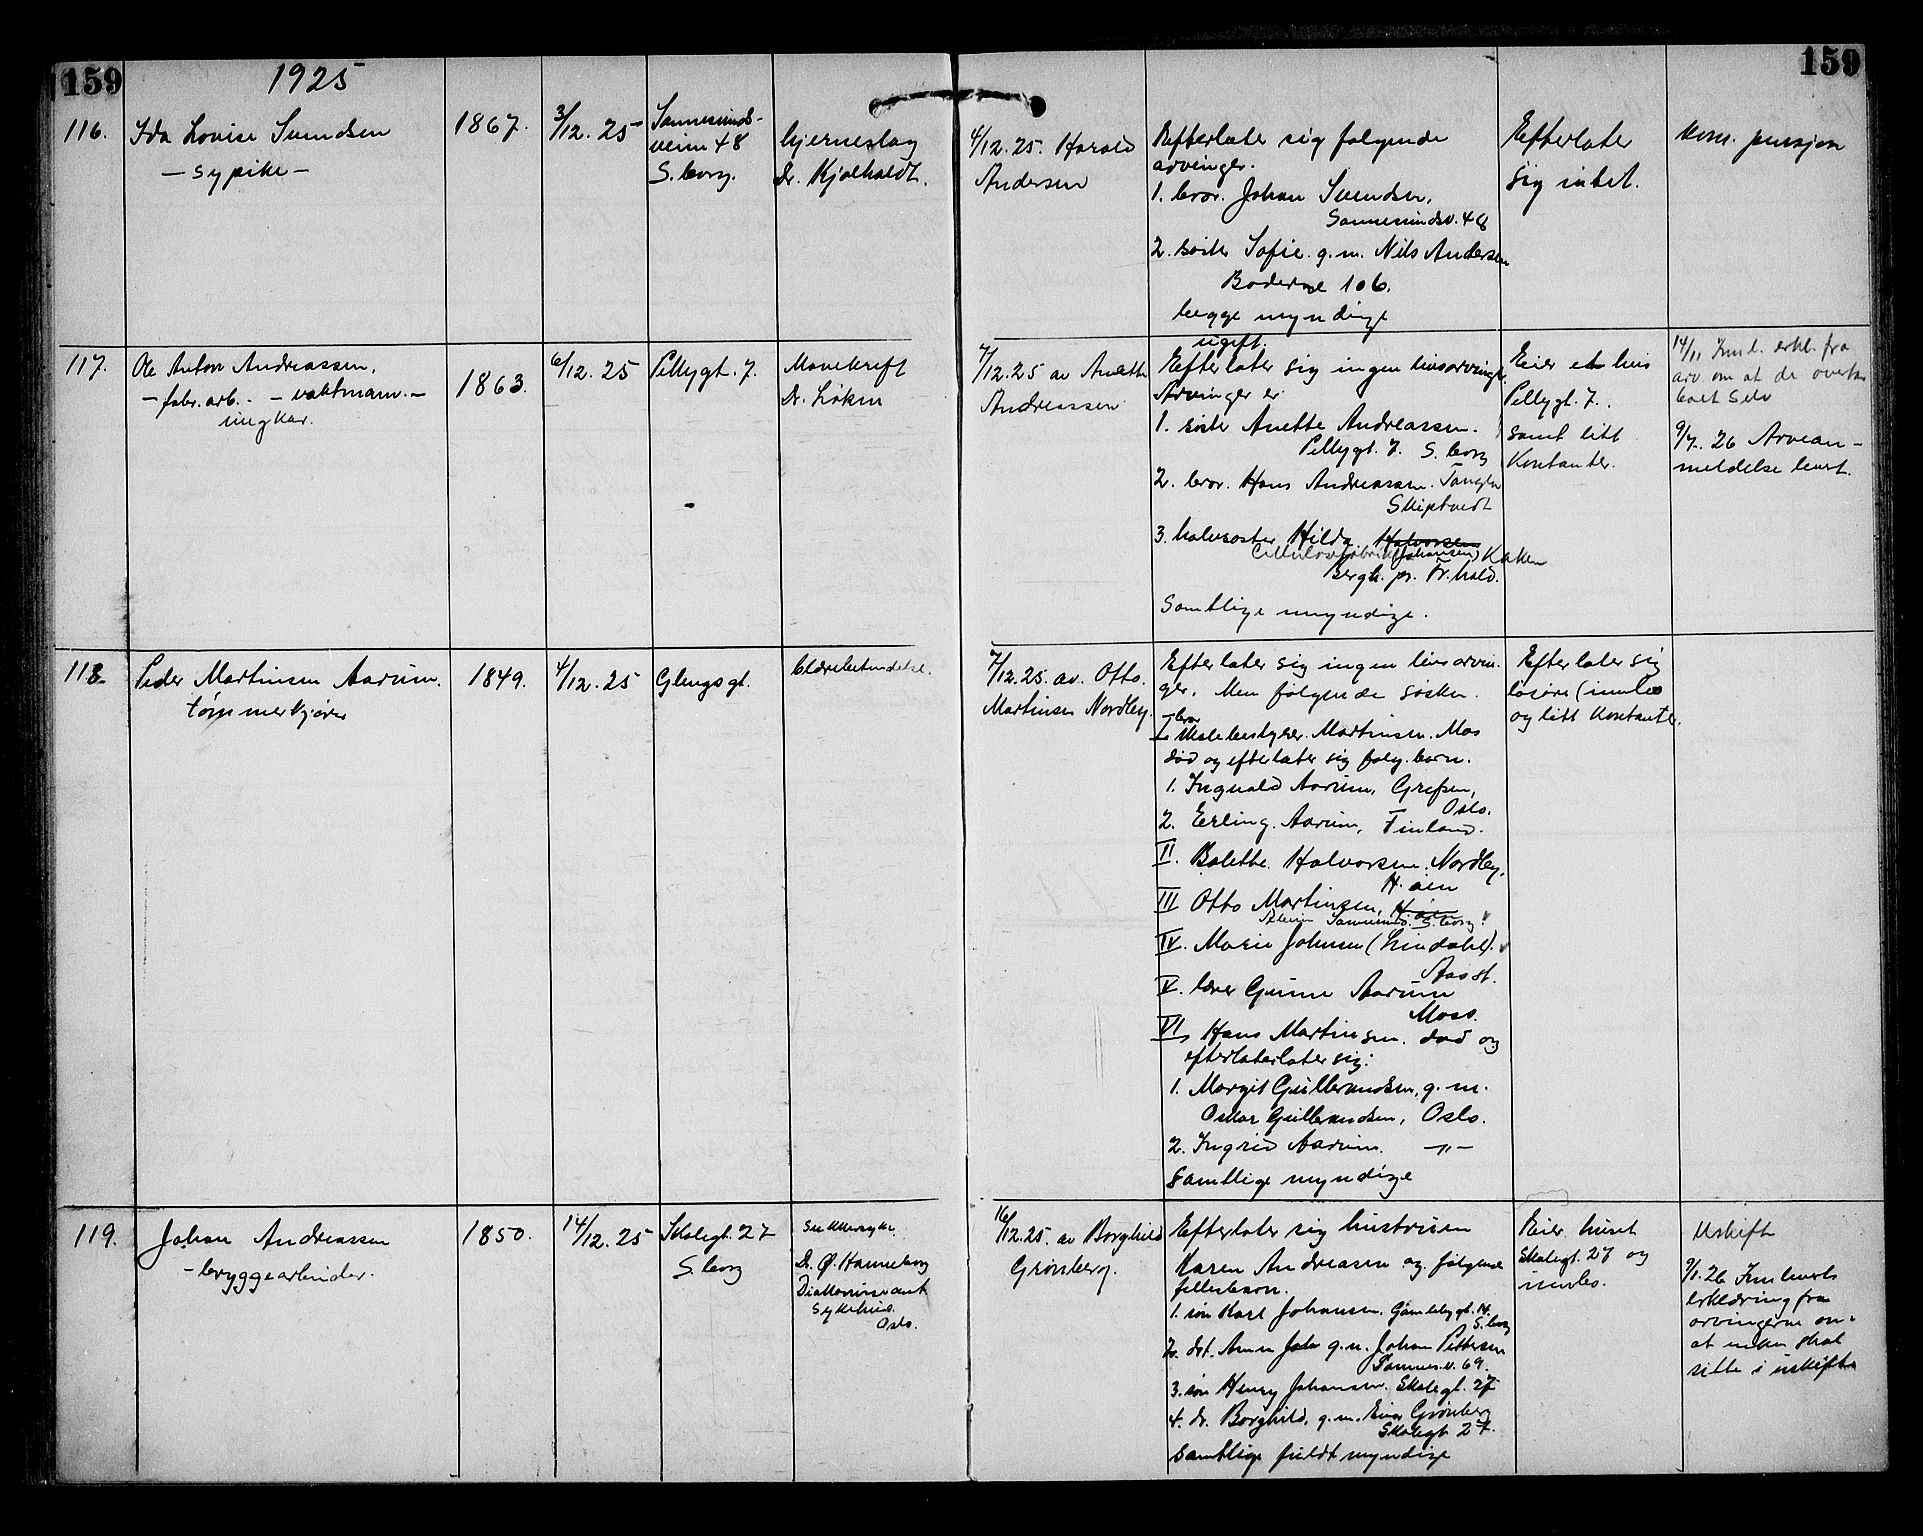 159
1925
159
116.
Ida Lovise Svendsen
- sypike -
1867.
3/12. 25
Sannesunds-
veien 48
S.borg.
hjerneslag
Dr. Kjølholdt.
4/12. 25. Harald
Andersen
Efterlater sig følgende
arvinger.
1. bror. Johan Svendsen,
Sannesundsv. 48
2. søster Sofie. g.m. Nils Andersen
106.
begge myndige
Efterlater
sig intet.
kom. pensjon
117.
Ole Anton Andreassen,
- fabr. arb. - - vaktmann. -
ungkar.
1863.
6/12. 25
Pellygt. 7.
Mavekreft
Dr. Løken
7/12. 25 av Anette
Andreassen
ugift.
Efterlater sig ingen livsarvinger.
Arvinger er
1. søster Anette Andreassen.
Pellygt. 7. S.borg
2. bror. Hans Andreassen. Tangen
Skiptvedt
3. halvsøster Hilda Halvorsen
(Johansen)
Bergh. pr. Fr.hald.
Samtlige myndige.
Eier et hus
Pellygt. 7.
samt litt
Kontanter.
14/11 Innl. erkl. fra
arv. om at de overtar
boet selv
9/7. 26 Arvean-
meldelse levert.
118.
Peder Martinsen Aarum.
tømmerkjører
1849.
4/12. 25
Glengsgt.
blærebetendelse.
7/12. 25. av. Otto.
Martinsen Nordby.
Efterlater sig ingen livsarvin-
ger. Men følgende søsken.
bror
I. Skolebestyrer. Martinsen. Mos
død og efterlater sig følg. barn.
1. Ingvald Aarum, Grefsen,
Oslo.
2. Erling. Aarum, Finland.
II. Bolette Halvorsen. Nordby,
H. øen
III Otto Martinsen, H. øen
Sannesund. S.borg
IV. Marie Johnsen (Lindahl).
Aas st.
V. lærer Gunne Aarum
Moss.
VI Hans Martinsen. død og
efterlaterlater sig:
1. Margit Gulbrandsen, g. m.
Oskar Gulbrandsen, Oslo.
2. Ingrid Aarum. -"-
Samtlige myndige
Efterlater sig
løsøre (innbo
og litt Kontanter.
119.
Johan Andreassen
- bryggearbeider.
1850.
14/12. 25
Skolegt. 27
S.borg
Sukkersyke.
Dr. Ø. Hanneborg
Sykehus.
Oslo.
16/12. 25. av Borghild
Grønberg.
Efterlater sig hustruen
Karen Andreasen og følgende
fellesbarn.
1. søn Karl Johansen. Gamlebygt. 14.
S.borg
2. dt. Anna g. m. Johan Pettersen
Sannes.v. 69.
3. søn Henry Johansen. Skolegt. 27
4. dt. Borghild, g. m. Einar Grønberg
Skolegt 27.
samtlige fuldt myndige
Eier huset
Skolegt. 27 og
innbo.
Uskifte
9/1. 26 Innlevert
erklæring fra
arvingerne om
at enken skal
sitte i uskifte